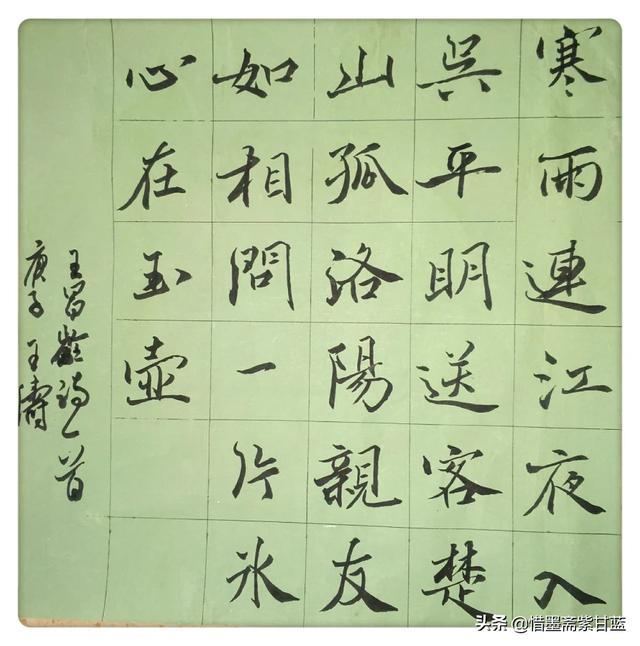 寒雨連江夜入
吳平明送客楚
山孤洛陽親友
如相問一片冰
心在玉壺
王昌齡詩一首
庚子 王濤
头条 @惜墨斋紫甘蓝